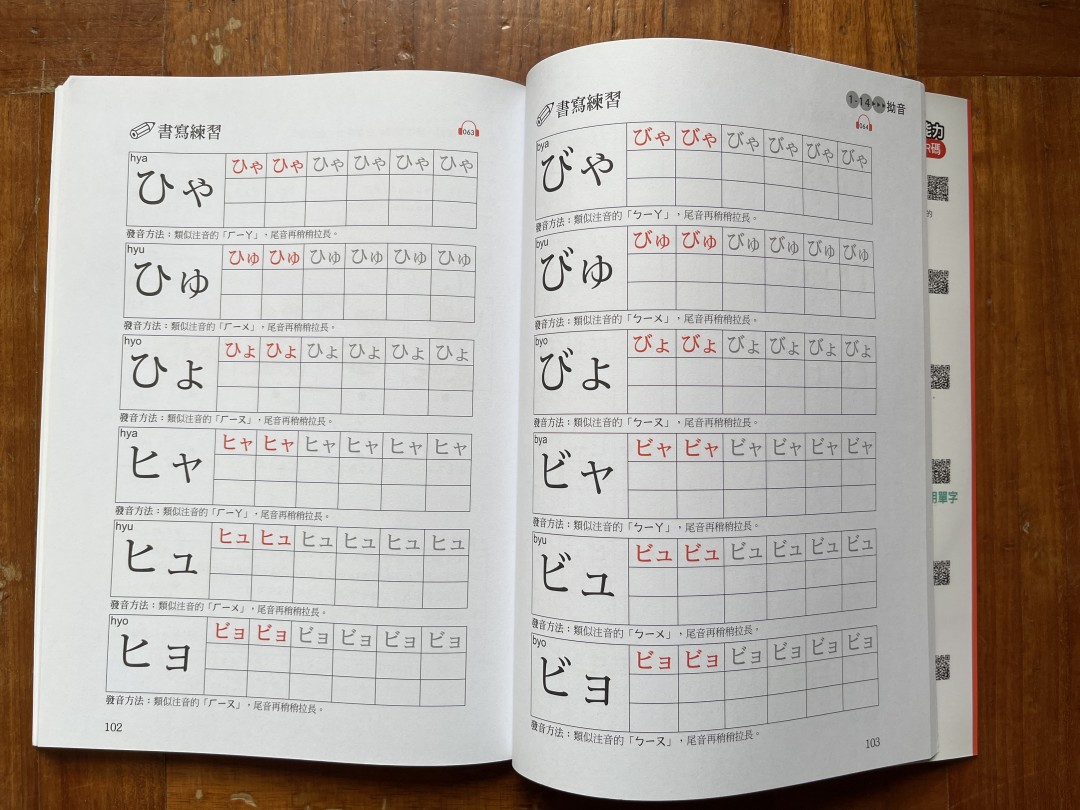 書寫練習
063
hya
ひゃ ひゃ ひゃ ひゃ ひゃ ひゃ ひゃ
發音方法：類似注音的「ㄏㄧㄚ」，尾音再稍稍拉長。
hyu
ひゅ ひゅ ひゅ ひゅ ひゅ ひゅ ひゅ
發音方法：類似注音的「ㄏㄧㄨ」，尾音再稍稍拉長。
hyo
ひょ ひょ ひょ ひょ ひょ ひょ ひょ
發音方法：類似注音的「ㄏㄧㄡ」，尾音再稍稍拉長。
hya
ヒャ ヒャ ヒャ ヒャ ヒャ ヒャ ヒャ
發音方法：類似注音的「ㄏㄧㄚ」，尾音再稍稍拉長。
hyu
ヒュ ヒュ ヒュ ヒュ ヒュ ヒュ ヒュ
發音方法：類似注音的「ㄏㄧㄨ」，尾音再稍稍拉長。
hyo
ヒョ ビョ ビョ ビョ ビョ ビョ ビョ
發音方法：類似注音的「ㄏㄧㄡ」，尾音再稍稍拉長。
102
書寫練習
1-14 拗音
064
bya
びゃ びゃ びゃ びゃ びゃ びゃ びゃ
發音方法：類似注音的「ㄅㄧㄚ」，尾音再稍稍拉長。
byu
びゅ びゅ びゅ びゅ びゅ びゅ びゅ
發音方法：類似注音的「ㄅㄧㄨ」，尾音再稍稍拉長。
byo
びょ びょ びょ びょ びょ びょ びょ
發音方法：類似注音的「ㄅㄧㄡ」，尾音再稍稍拉長。
bya
ビャ ビャ ビャ ビャ ビャ ビャ ビャ
發音方法：類似注音的「ㄅㄧㄚ」，尾音再稍稍拉長。
byu
ビュ ビュ ビュ ビュ ビュ ビュ ビュ
發音方法：類似注音的「ㄅㄧㄨ」，尾音再稍稍拉長。
byo
ビョ ビョ ビョ ビョ ビョ ビョ ビョ
發音方法：類似注音的「ㄅㄧㄡ」，尾音再稍稍拉長。
103
力
碼
的
單字